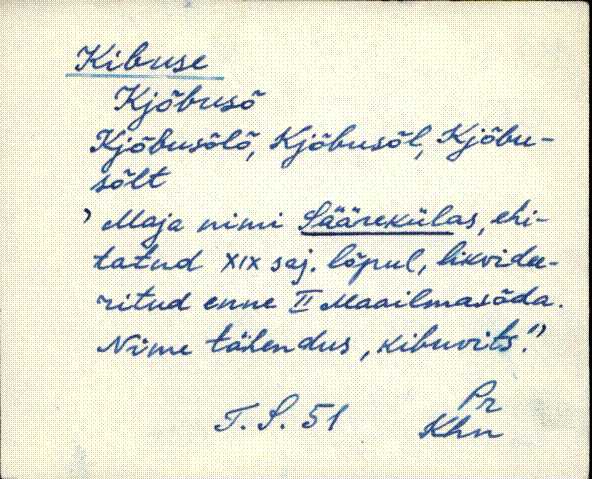 Kibuse
Kjõbusõ
Kjõbusõlõ, Kjõbusõl, Kjõbu-
sõlt
, Maja nimi Sääreküla​s, ehi-
tatud XIX saj. lõpul, likvidee-
ritud enne II Maailmasõda.
Nime tähendus „kibuvits."
T. S. 51
Pr
Khn